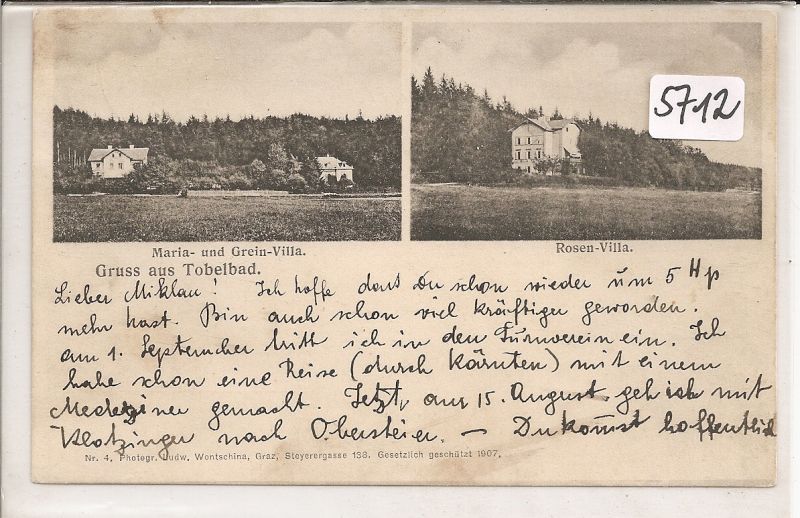 5712
Maria- und Grein-Villa.
Rosen-Villa.
Gruss aus Tobelbad.
Lieber Miklau! Ich hoffe dass Du schon wieder um 5 Hp
mehr hast. Bin auch schon viel kräftiger geworden.
am 1. September tritt ich in den Turnverein ein. Ich
habe schon eine Reise (durch Kärnten) mit einem
Mediziner gemacht. Jetzt, am 15. August geh ich mit
Klatzinger nach Obersteier. — Du kommst hoffentlich
Nr. 4, Photogr. Ludw. Wontschina, Graz, Steyerergasse 138. Gesetzlich geschützt 1907.